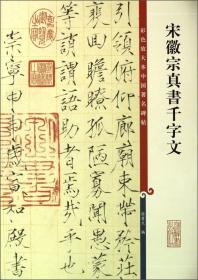 宋徽宗真書千字文
彩色放大本中國著名碑帖
引領俯仰廊廟束帶矜莊
徘徊瞻眺孤陋寡聞愚蒙
等誚謂語助者焉哉乎
也
崇寧甲申歲宜和殿書